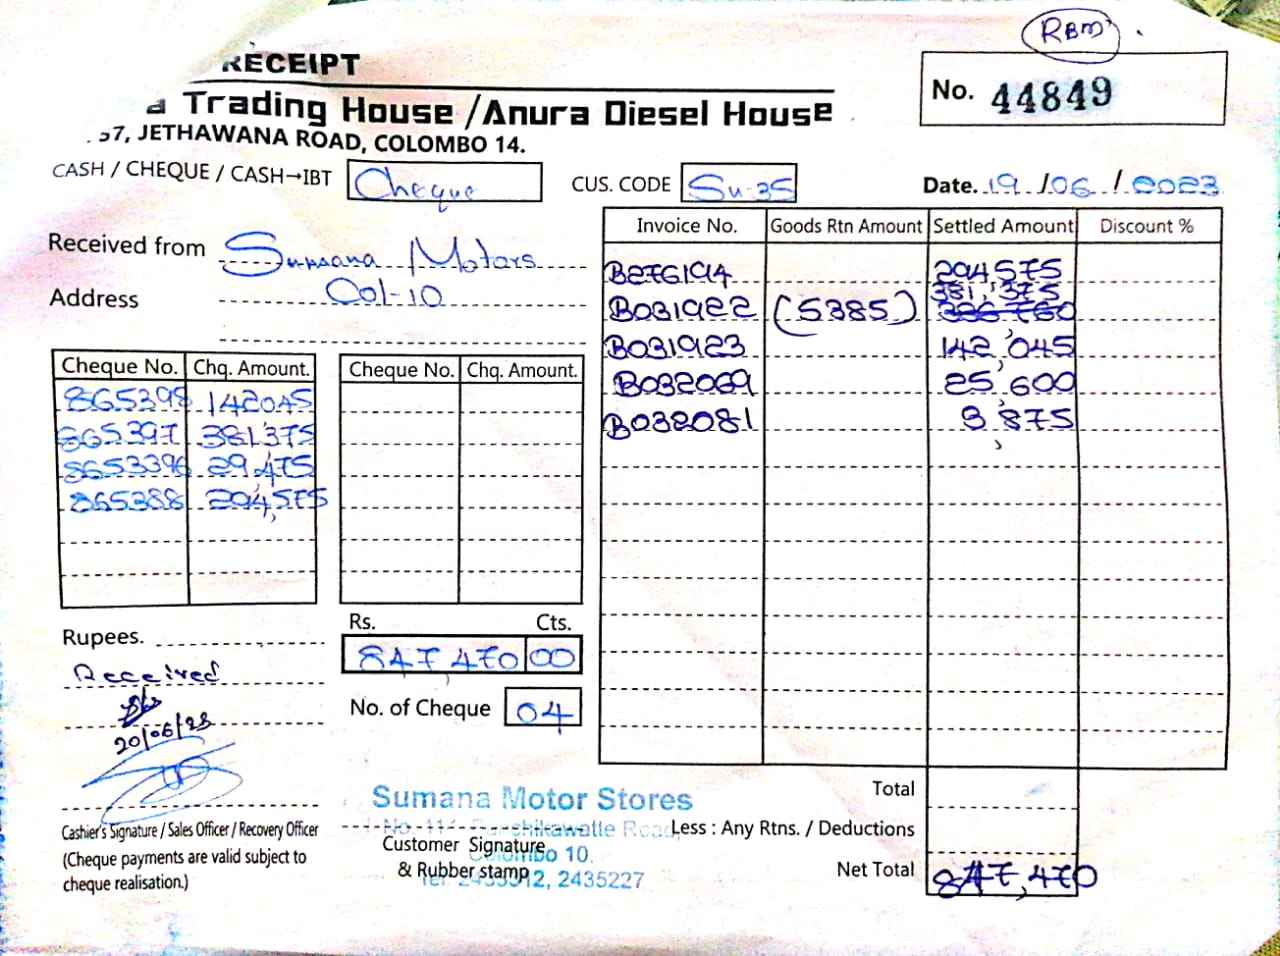 RBM
RECEIPT
No. 44849
a Trading House / Anura Diesel House
57, JETHAWANA ROAD, COLOMBO 14.
CASH / CHEQUE / CASH→IBT Cheque CUS. CODE Su-35 Date. 19/06/2023
Received from Sumana Motors
Address Col-10
Invoice No. Goods Rtn Amount Settled Amount Discount %
B276194 294,575
381,375
B031922 (5385) 386760
B031923 142,045
B032069 25,600
B032081 3,875
Cheque No. Chq. Amount. Cheque No. Chq. Amount.
865398 142045
865397 381,375
8653396 29,475
865388 294,575
Rupees.
Rs. Cts.
847,470 00
Received
No. of Cheque 04
20/06/23
Sumana Motor Stores
Panchikawatte Road,
Colombo 10.
2435227
Cashier's Signature / Sales Officer / Recovery Officer
(Cheque payments are valid subject to
cheque realisation.)
Customer Signature
& Rubber stamp
Total
Less : Any Rtns. / Deductions
Net Total 847,470